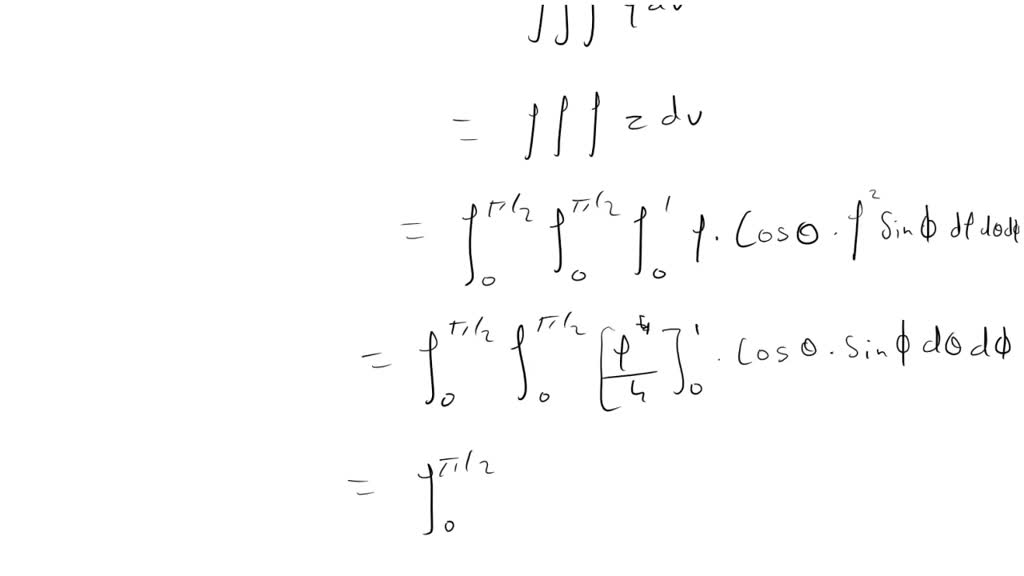 ∫∫∫ z dv
= ∫∫∫ z dv
= ∫₀^{π/2} ∫₀^{π/2} ∫₀^1 ρ. Cosθ . ρ² Sinϕ dρ dθ dϕ
= ∫₀^{π/2} ∫₀^{π/2} [ρ⁴/4]₀^1 . Cosθ . Sinϕ dθ dϕ
= ∫₀^{π/2}